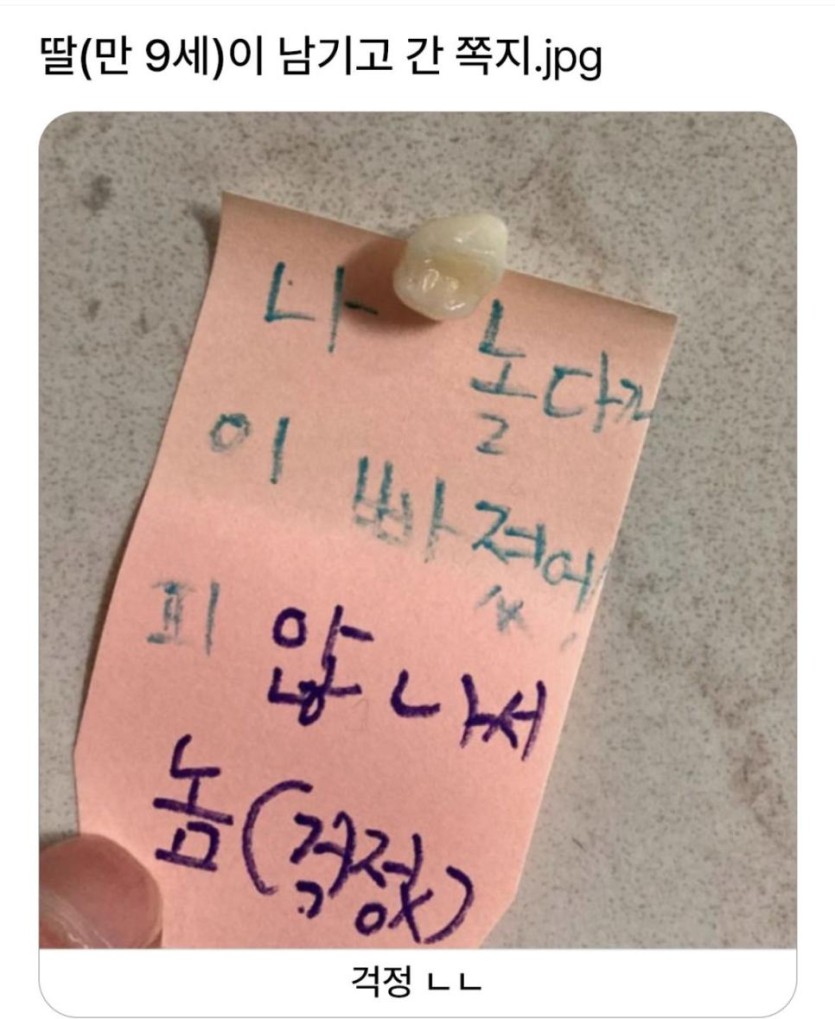 딸(만 9세)이 남기고 간 쪽지.jpg
나 놀다가
이 빠젔어!
피 않 나서
놈(걱정X)
걱정 ㄴㄴ